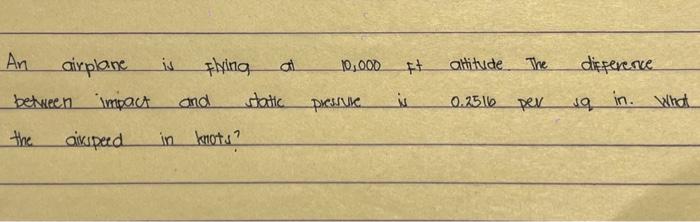 An airplane is flying at 10,000 ft altitude. The difference
between impact and static pressure is 0.25lb per sq in. What
the airspeed in knots?